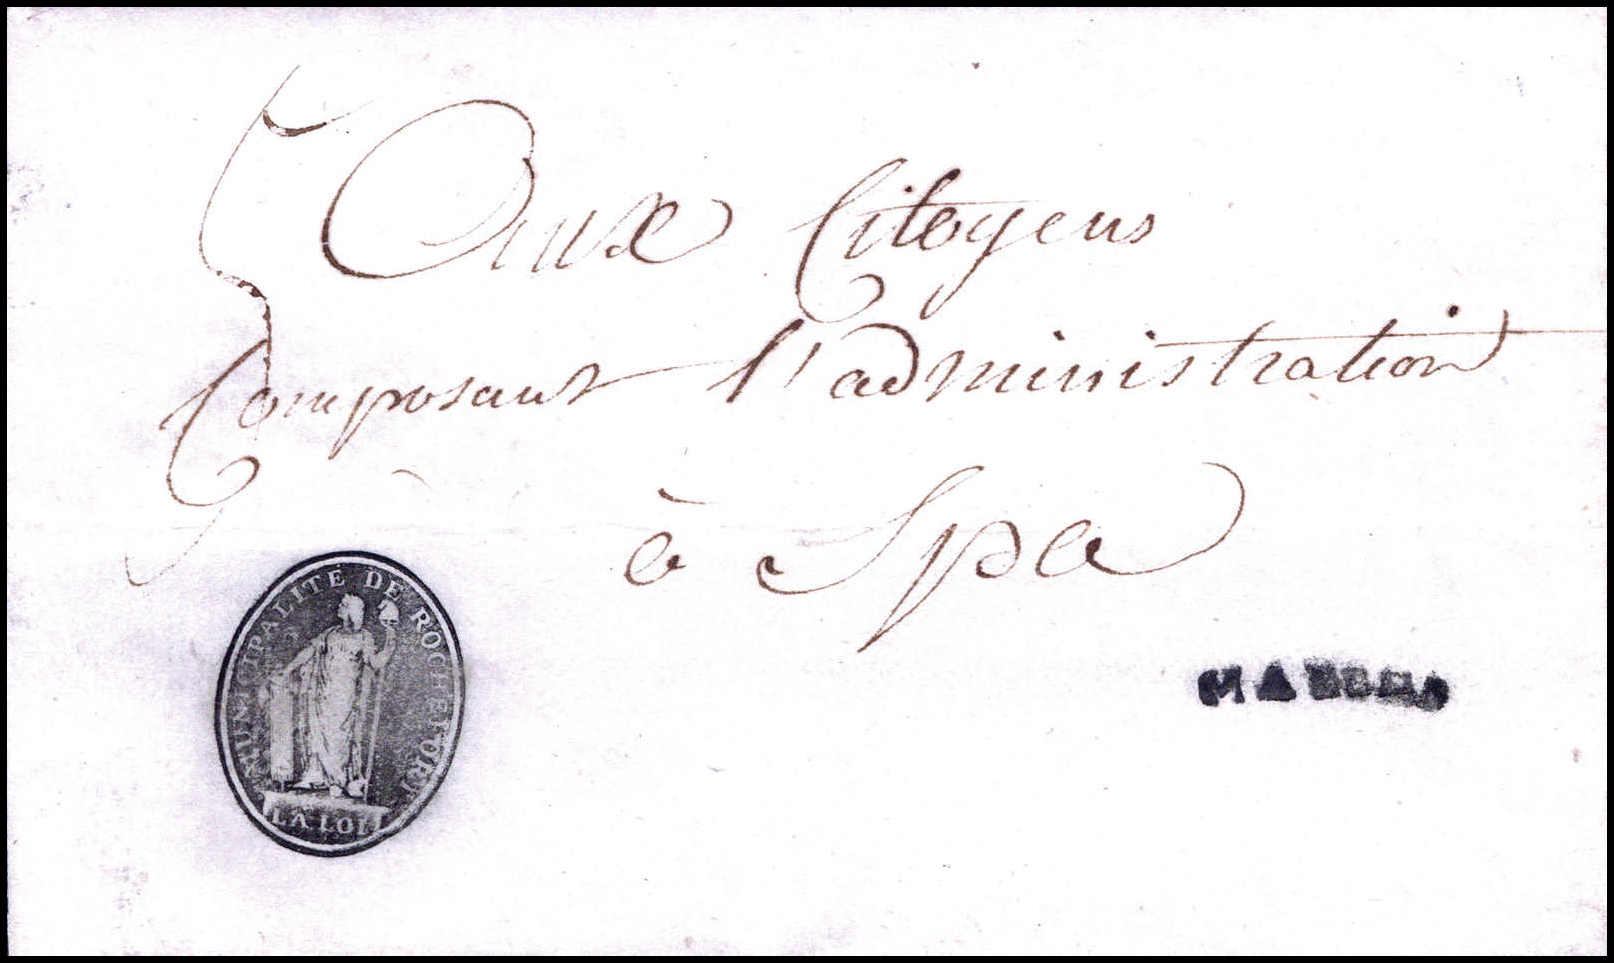 5
Aux Citoyens
Composant l'administration
à Spa
MUNICIPALITÉ DE ROCHEFORT
LA LOI